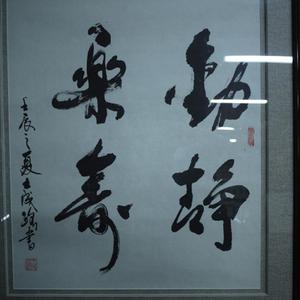 動静
樂壽
壬辰之夏
書